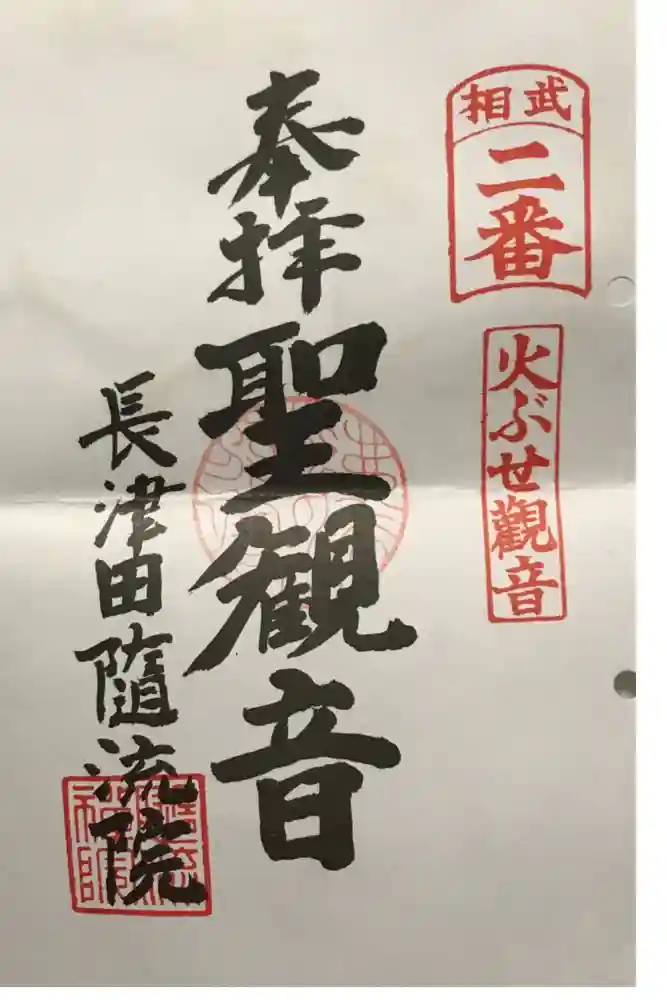 武相
二番
火ぶせ觀音
奉拝
聖観音
長津田隨流院